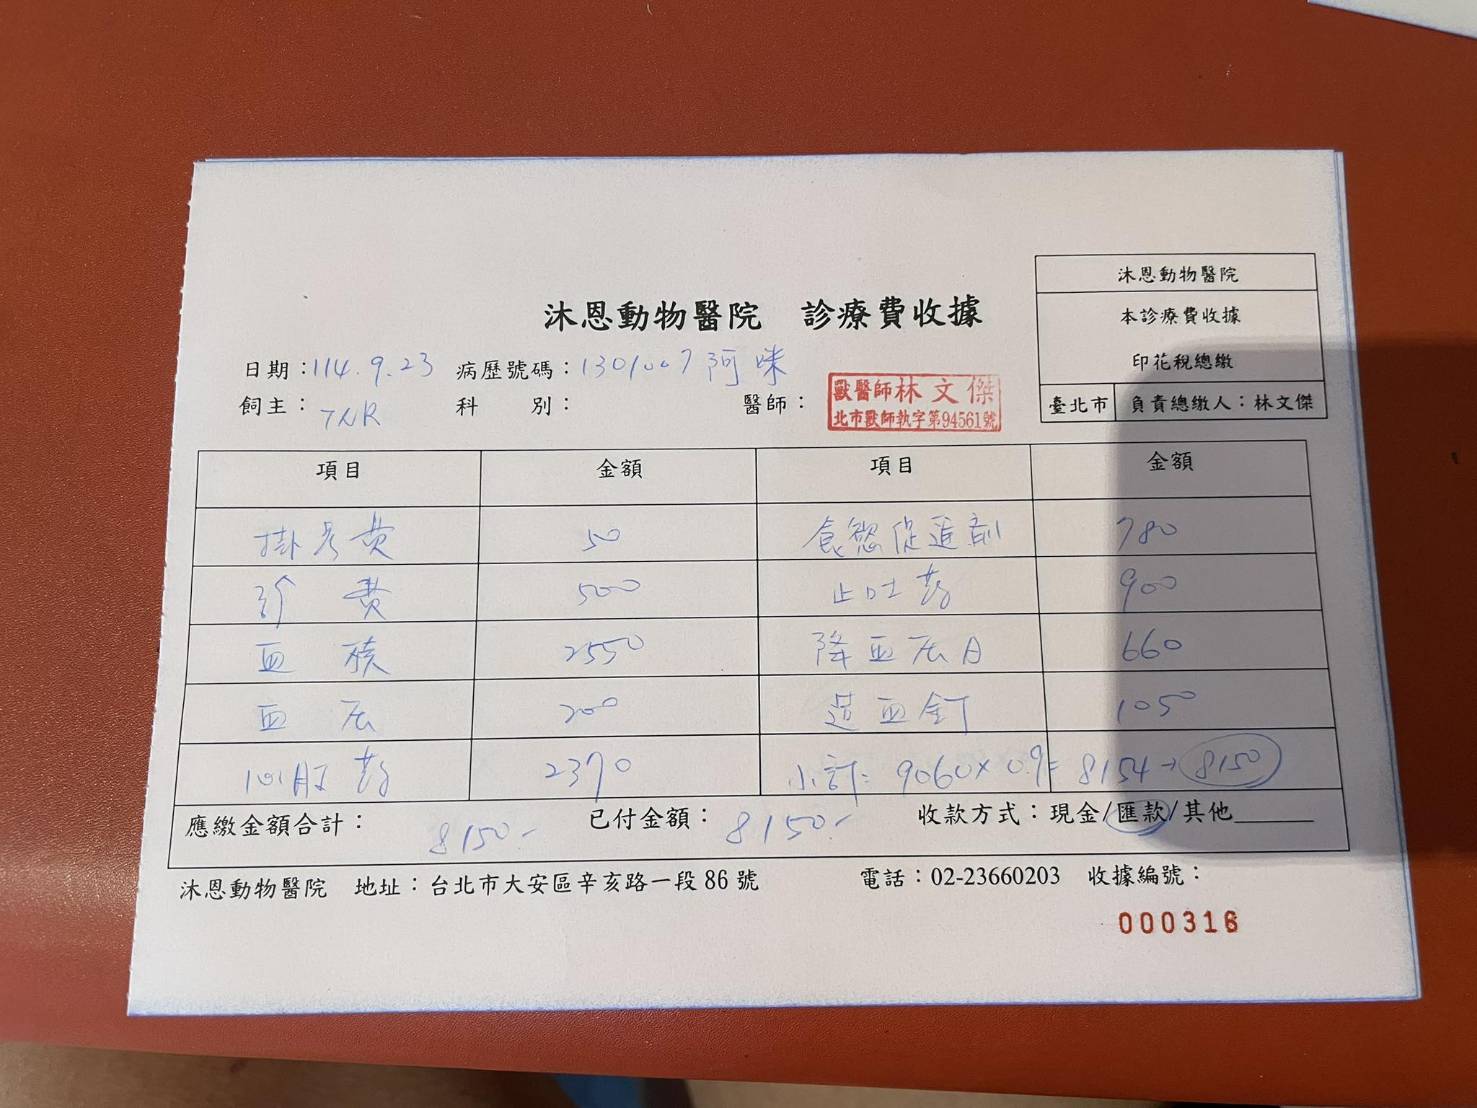 沐恩動物醫院
本診療費收據
印花稅總繳
臺北市 負責總繳人：林文傑
沐恩動物醫院 診療費收據
日期：114.9.23 病歷號碼：1301007 阿咪
飼主：TNR 科 別： 醫師：
獸醫師林文傑
北市獸師執字第94561號
項目 金額 項目 金額
掛号費 50 食慾促進劑 780
診費 500 止吐药 900
血檢 2550 降血压月 660
血压 200 造血針 1050
口服药 2370 小計：9060×0.9=8154→8150
應繳金額合計：8150.- 已付金額：8150.- 收款方式：現金/匯款/其他
沐恩動物醫院 地址：台北市大安區辛亥路一段86號 電話：02-23660203 收據編號：
000316